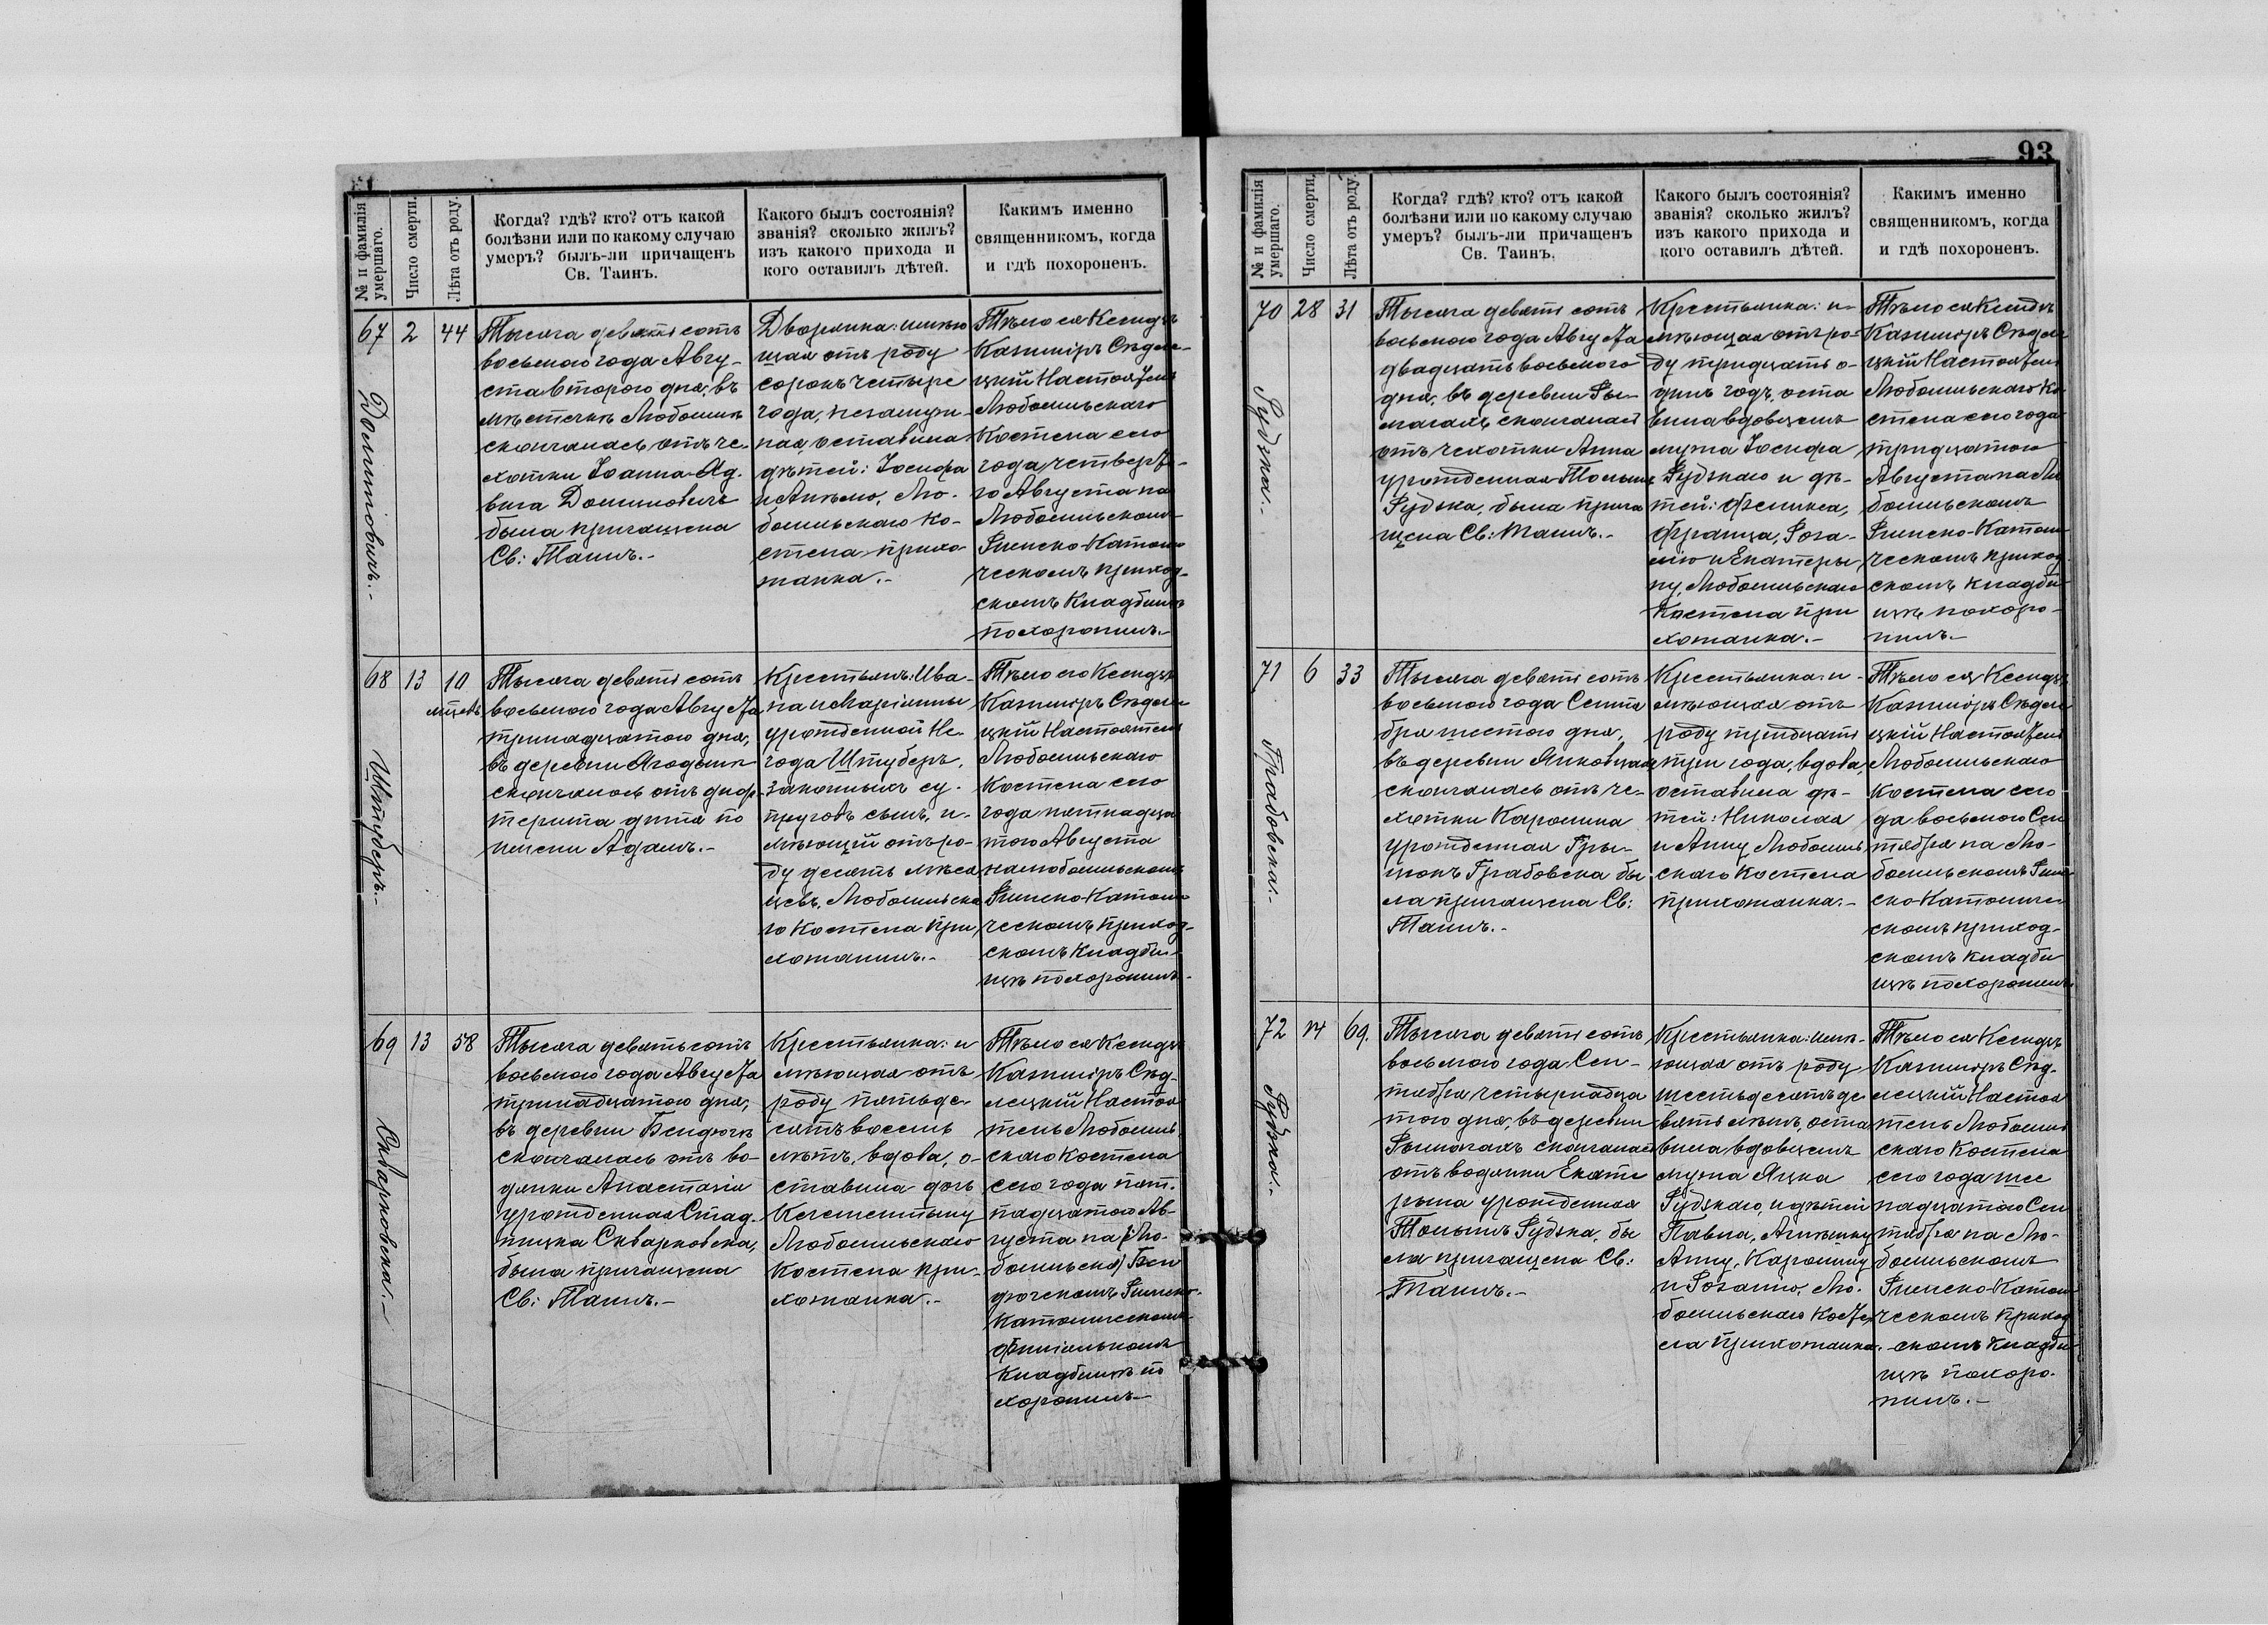 № и фамилія
умершаго.
Число смерти.
Лѣта отъ роду.
Когда? гдѣ? кто? отъ какой
болѣзни или по какому случаю
умеръ? былъ-ли причащенъ
Св. Таинъ.
Какого былъ состоянія?
званія? сколько жилъ?
изъ какого прихода и
кого оставилъ дѣтей.
Какимъ именно
священникомъ, когда
и гдѣ похороненъ.
67
Долиновичъ.-
2
44
Тысяча девятьсотъ
восьмого года Авгу-
ста второго дня, въ
мѣстечкѣ Любомлѣ
скончалась отъ ча-
хотки Іоанна-Яд-
вига Долиновичъ
была причащена
Св: Таинъ.-
Дворянка: имѣю
щая отъ роду
сорокъ четыре
года, незамуж-
ная, оставила
дѣтей: Іосифа
и Анелю, Лю-
бомльскаго ко-
стела прихо-
жанка.-
Тѣло ея Ксендзъ
Казиміръ Сѣдле-
цкій Настоятель
Любомльскаго
Костела сего
года четверта-
го Августа на
Любомльскомъ
Римско-Католи
ческомъ приход-
скомъ кладбищѣ
похоронилъ.-
68
Штуберъ.-
13
10
мѣсяц.
Тысяча девятьсотъ
восьмого года Августа
тринадцатого дня,
въ деревни Ягодынѣ
скончалось отъ диф-
терита дитя по
имени Адамъ.-
Крестьянъ: Ива-
на и Маріанны
урожденной Не-
года Штуберъ,
законныхъ су-
пруговъ сынъ, и-
мѣющій отъ ро-
ду десять мѣся
цевъ, Любомльска
го Костела при-
хожанинъ.-
Тѣло его Ксендзъ
Казиміръ Сѣдле-
цкій Настоятель
Любомльскаго
Костела сего
года пятнадца
того Августа
на Любомльскомъ
Римско-Католи
ческомъ приход-
скомъ кладби-
щѣ похоронилъ.-
69
Скварковска.-
13
58
Тысяча девятьсотъ
восьмого года Августа
тринадцатого дня,
въ деревни Бендюгѣ
скончалась отъ во-
дянки Анастазія
урожденная Стад-
ницка Скварковска,
была причащена
Св: Таинъ.-
Крестьянка: и
мѣющая отъ
роду пятьде-
сятъ восемь
лѣтъ, вдова, о-
ставила дочь
Клементыну
Любомльскаго
Костела при-
хожанка.-
Тѣло ея Ксендзъ
Казиміръ Сѣд-
лецкій Настоя
тель Любомль
скаго Костела
сего года пят-
надцатого Ав-
густа на (Лю-
бомльско) Бен
дюгскомъ Римско-
Католическомъ
филіальномъ
Кладбищѣ по
хоронилъ-
93
№ и фамилія
умершаго.
Число смерти.
Лѣта отъ роду.
Когда? гдѣ? кто? отъ какой
болѣзни или по какому случаю
умеръ? былъ-ли причащенъ
Св. Таинъ.
Какого былъ состоянія?
званія? сколько жилъ?
изъ какого прихода и
кого оставилъ дѣтей.
Какимъ именно
священникомъ, когда
и гдѣ похороненъ.
70
Рудзка.-
28
31
Тысяча девятьсотъ
восьмого года Августа
двадцать восьмого
дня, въ деревни Ры-
мачахъ скончалась
отъ чахотки Анна
урожденная
Рудзка, была прича
щена Св: Таинъ.-
Крестьянка: и-
мѣющая отъ ро-
ду тридцать о-
динъ годъ, оста
вила вдовцемъ
мужа Іосифа
Рудзкаго и дѣ-
тей: Феликса,
Франца, Роза-
лію и Екатеры-
ну, Любомльскаго
Костела при
хожанка.-
Тѣло ея Ксендзъ
Казиміръ Сѣдле
цкій Настоятель
Любомльскаго Ко
стела сего года
тридцатого
Августа на Лю
бомльскомъ
Римско-Католи
ческомъ приход
скомъ кладби
щѣ похоро-
нилъ.-
71
Грабовска.-
6
33
Тысяча девятьсотъ
восьмого года Сентя
бря шестого дня,
въ деревни Янковцахъ
скончалась отъ ча-
хотки Каролина
урожденная Гры-
цюкъ Грабовска бы
ла причащена Св:
Таинъ.-
Крестьянка: и-
мѣющая отъ
роду тридцать
три года, вдова,
оставила дѣ-
тей: Николая
и Анну, Любомль
скаго Костела
прихожанка.-
Тѣло ея Ксендзъ
Казиміръ Сѣдле
цкій Настоятель
Любомльскаго
Костела сего го
да восьмого Сен
тября на Лю-
бомльскомъ Рим
ско-Католиче
скомъ приход-
скомъ кладби
щѣ похоронилъ
72
Рудзка.-
14
69.
Тысяча девятьсотъ
восьмого года Сен-
тября четырнадца
того дня, въ деревни
Рымачахъ скончалась
отъ водянки Екате
рына урожденная
Рудзка, бы
ла причащена Св:
Таинъ.-
Крестьянка: имѣ-
ющая отъ роду
шестьдесятъ де
вять лѣтъ, оста
вила вдовцемъ
мужа Яцка
Рудзкаго, и дѣтей
Павла, Агнешку
Анну, Каролину
и Розалію, Лю-
бомльскаго Косте
ла прихожанка.-
Тѣло ея Ксендзъ
Казиміръ Сѣд-
лецкій Настоя
тель Любомль
скаго Костела
сего года шес
надцатого Сен
тября на Лю-
бомльскомъ
Римско-Католи
ческомъ приход
скомъ кладби
щѣ похоро-
нилъ.-